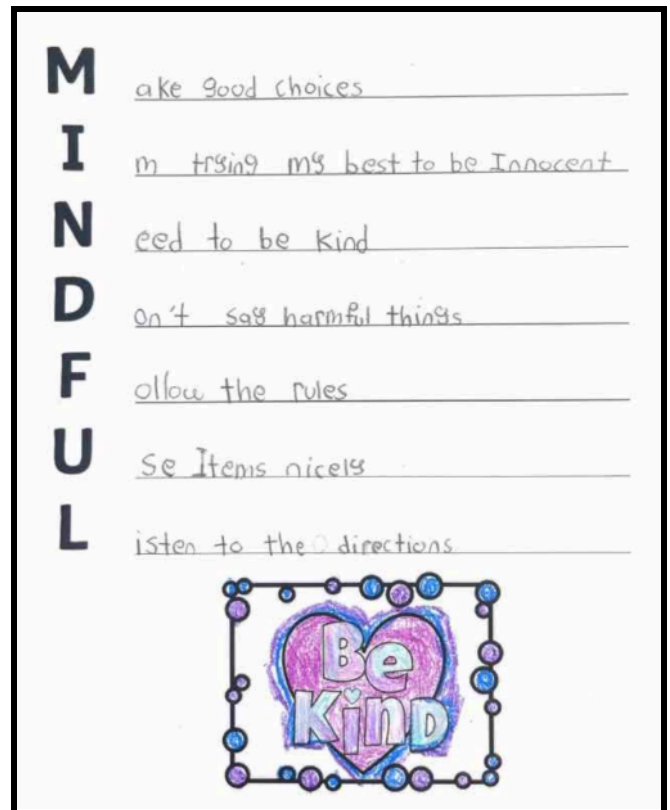 M ake good choices
I m trying my best to be Innocent
N eed to be kind
D on't say harmful things
F ollow the rules
U se Items nicely
L isten to the directions
Be
Kind